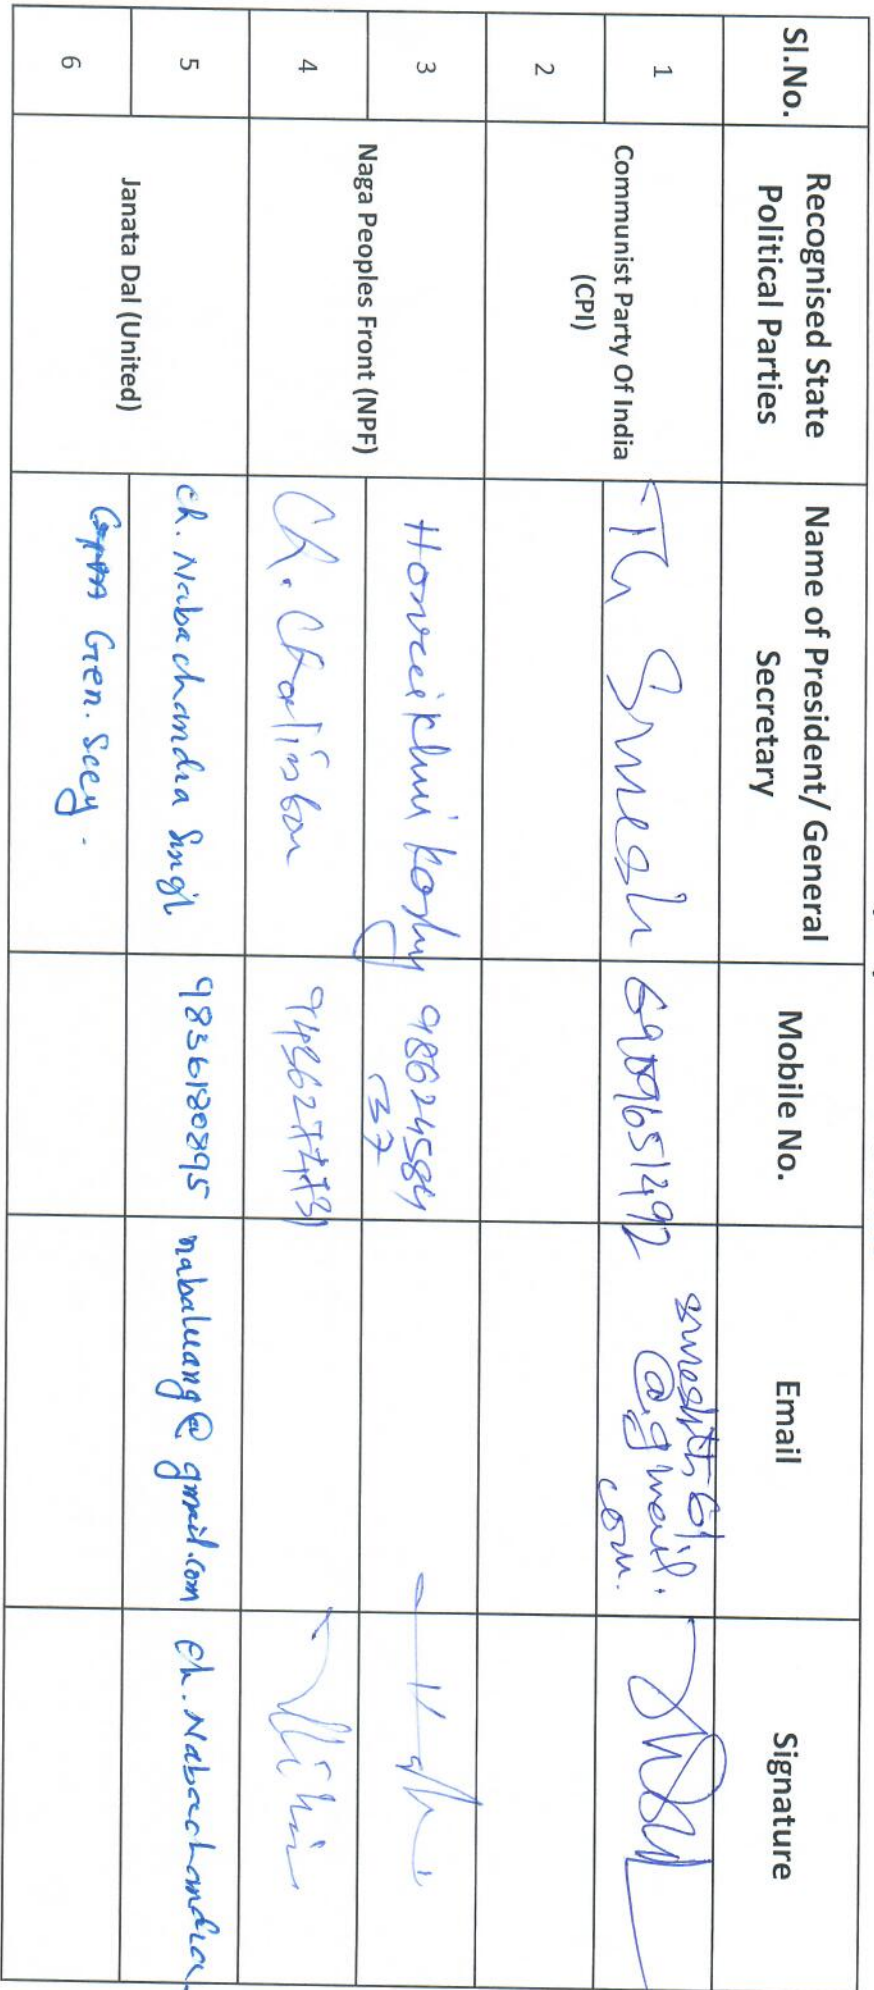 Sl.No.
Recognised State
Political Parties
Name of President/ General
Secretary
Mobile No.
Email
Signature
1
Communist Party Of India
(CPI)
Th Suresh
6909651492
sureshth61
@gmail.
com.
2
3
Naga Peoples Front (NPF)
98624584
37
4
Ch.
5
Janata Dal (United)
Ch. Nabachandra Singh
9836180895
nabaluang@gmail.com
Ch. Nabachandra
6
Gen. Secy.